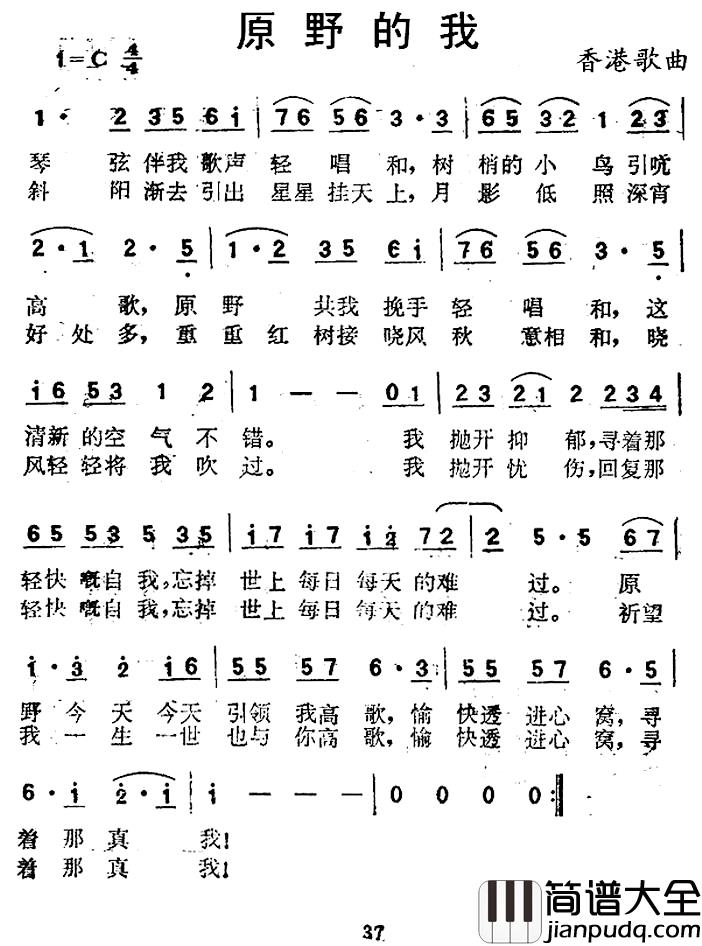 原野的我
1=C 4/4
香港歌曲
1· 2 35 6i | 76 56 3·3 | 65 32 1 23 |
琴 弦伴我歌声轻 唱 和，树 梢的小 鸟引吭
斜 阳渐去引出 星星挂天上，月 影 低 照深宵
2·1 2·5 | 1·2 35 6i | 76 56 3·5 |
高 歌，原 野 共我 挽手轻 唱 和，这
好处多，重重红 树接 晓风秋 意相和，晓
i6 53 1 2 | 1 — — 01 | 23 21 2 234 |
清新的空气不 错。 我 抛开抑 郁，寻着那
风轻轻将我吹 过。 我 抛开忧 伤，回复那
65 53 5 35 | i7 i7 i2 72 | 2 5·5 67 |
轻快嘅自我，忘掉 世上每日每天的难 过。 原
轻快嘅自我，忘掉 世上每日每天的难 过。 祈望
i·3 2 i6 | 55 57 6·3 | 55 57 6·5 |
野今天今天 引领我高 歌，愉 快透进心 窝，寻
我一生一世 也与你高 歌，愉 快透进心 窝，寻
6·i 2·i | i — — — | 0 0 0 0 :||
着那真 我！
着那真 我！
37
简谱大全
jianpudq.com